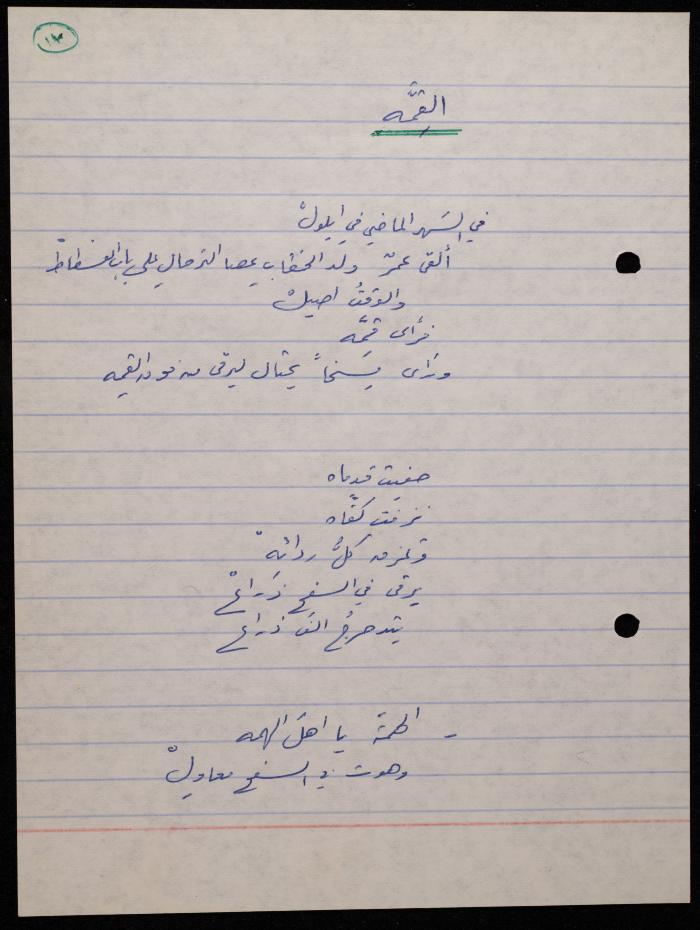 ١٧
القِمَّه
في الشهر الماضي في ايلولْ
ألقى عمرٌ ولد الخطاب عصا الترحالِ على باب الفسطاطْ
والوقتُ اصيلْ
فرأى قمَّه
ورَأى شيخاً يحتال ليرقى من فوق القمه
حفيت قدماه
نزفت كفَّاه
وتمزق كلُّ ردائِهْ
يرقى في السفحِ ذراعْ
يتدحرجُ الفَ ذراعْ
- الهمةَ يا اهلَ الهمه
وهوت في السفحِ معاولْ